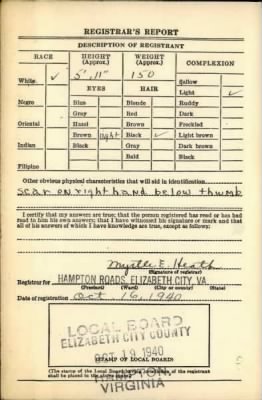 REGISTRAR'S REPORT
DESCRIPTION OF REGISTRANT
RACE HEIGHT (Approx.) WEIGHT (Approx.) COMPLEXION
5' 11" 150 Sallow
White ✓ EYES HAIR Light ✓
Negro Blue Blonde Ruddy
Gray Red Dark
Oriental Hazel Brown Freckled
Brown light Black ✓ Light brown
Indian Black Gray Dark brown
Bald Black
Filipino
Other obvious physical characteristics that will aid in identification
scar on right hand below thumb
I certify that my answers are true; that the person registered has read or has had
read to him his own answers; that I have witnessed his signature or mark and that
all of his answers of which I have knowledge are true, except as follows:
Myrtle E. Heath
(Signature of registrar)
Registrar for HAMPTON ROADS, ELIZABETH CITY, VA.
(Precinct) (Ward) (City or county) (State)
Date of registration Oct 16, 1940
LOCAL BOARD
ELIZABETH CITY COUNTY
OCT 19 1940
(STAMP OF LOCAL BOARD)
(The stamp of the Local Board having jurisdiction of the registrant
shall be placed in the above space.)
HAMPTON
VIRGINIA